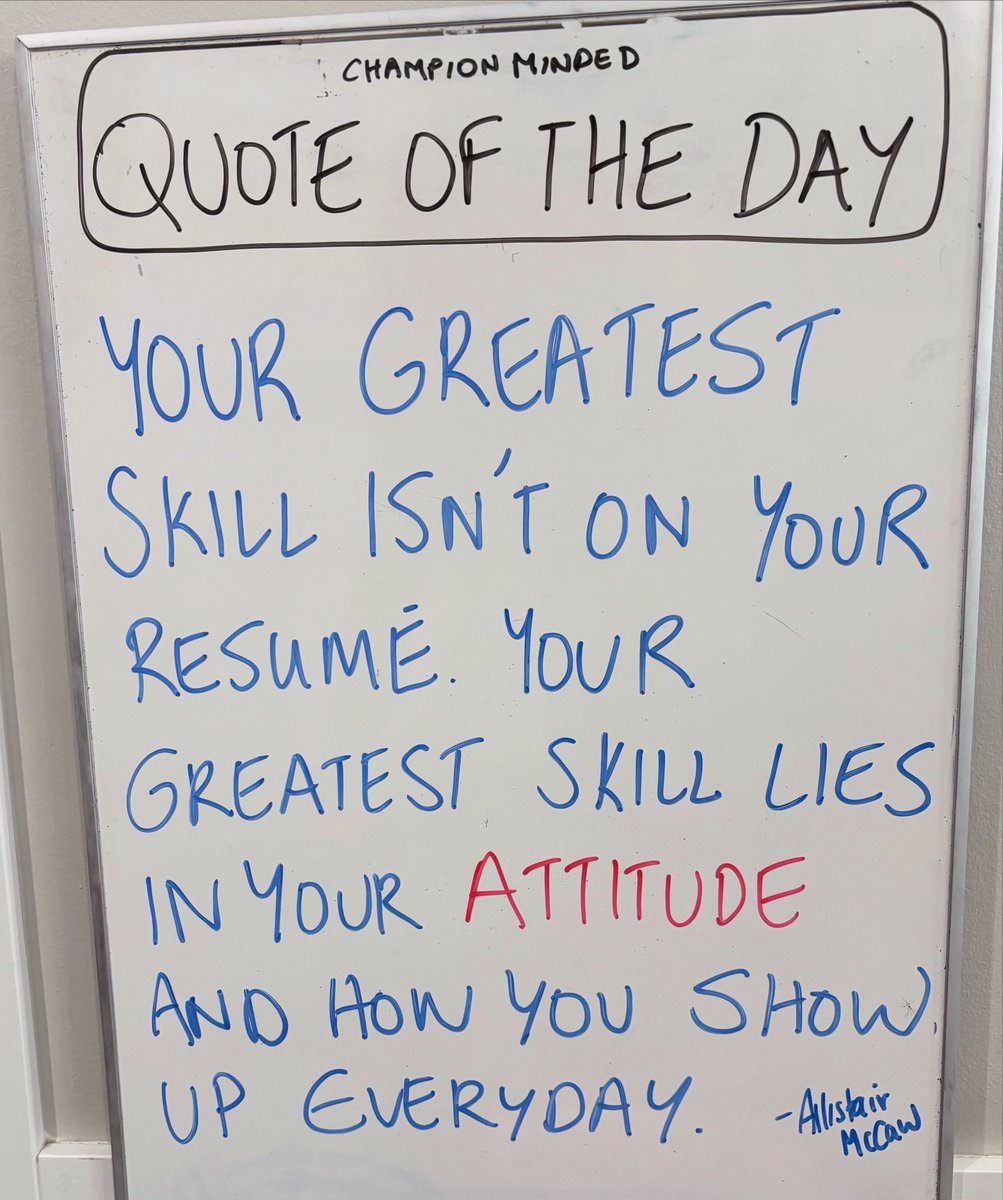 CHAMPION MINDED
QUOTE OF THE DAY
YOUR GREATEST
SKILL ISN'T ON YOUR
RESUMÉ. YOUR
GREATEST SKILL LIES
IN YOUR ATTITUDE
AND HOW YOU SHOW
UP EVERYDAY.
-Allistair
McCaw